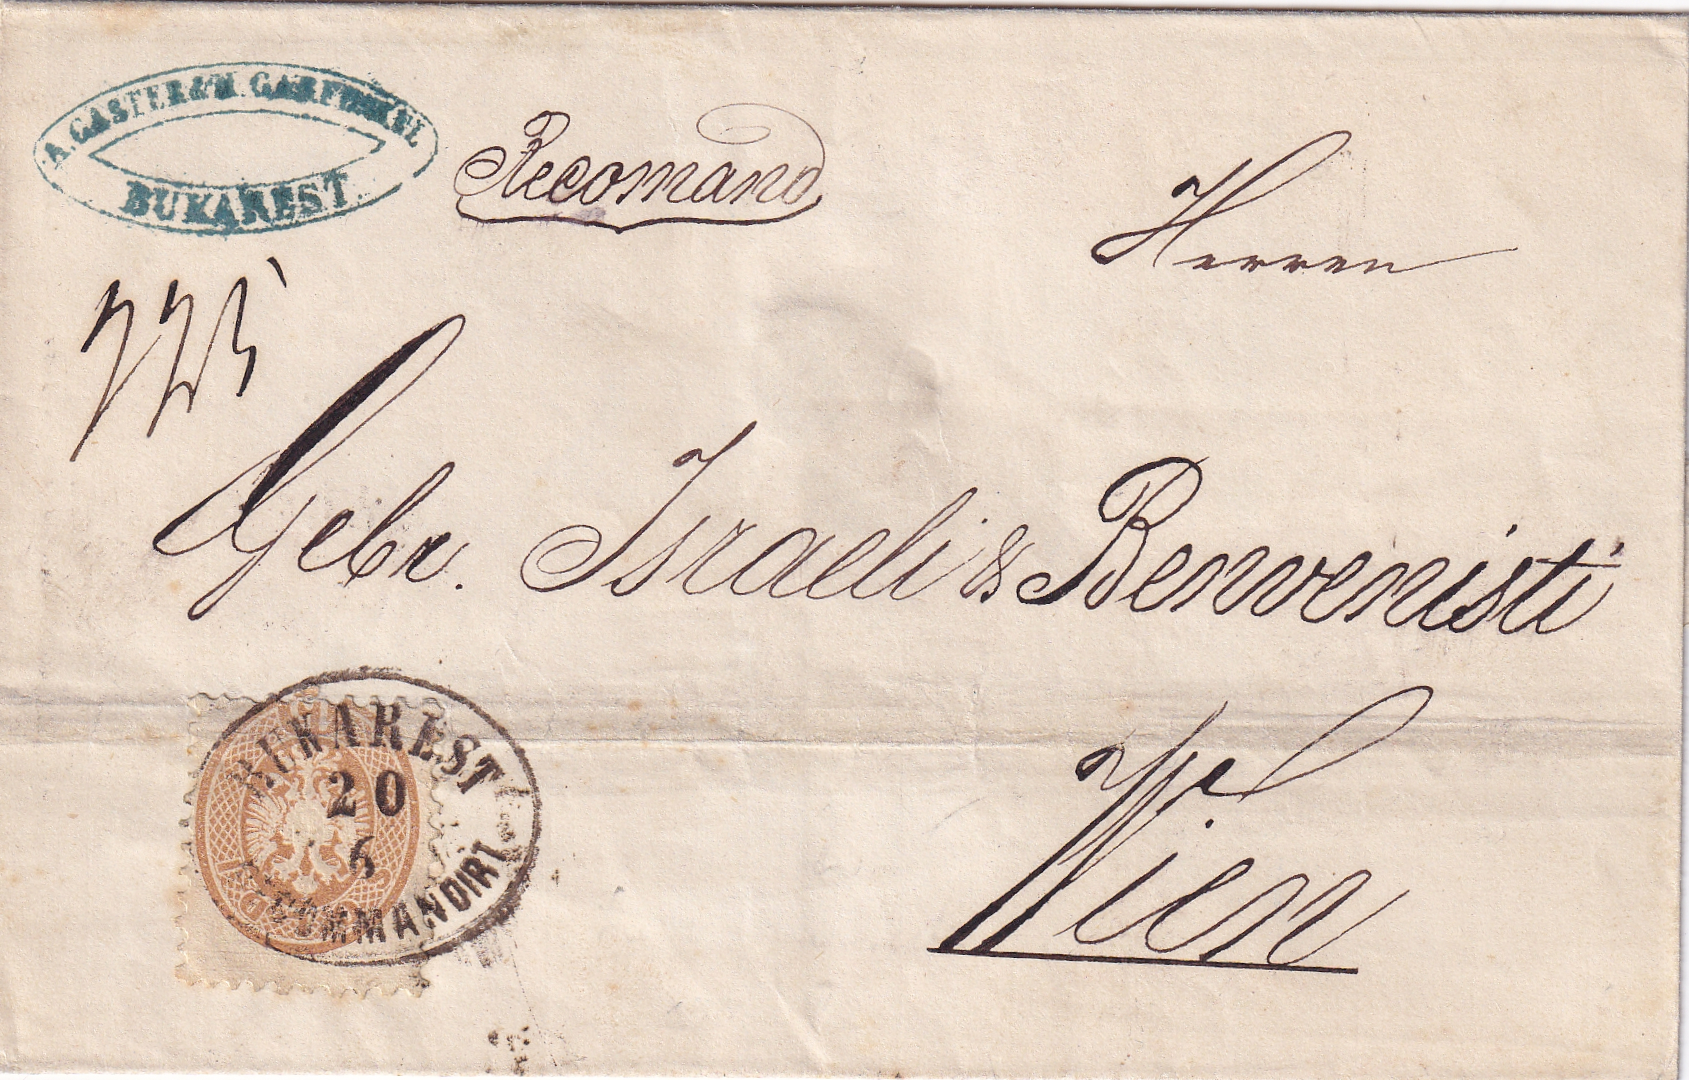 A. GASTER & M. GARFUNKEL
BUKAREST.
Recomand
Herren
Gebr. Israeli & Benvenisti
Wien
BUKAREST
20
6
RECOMMANDIRT